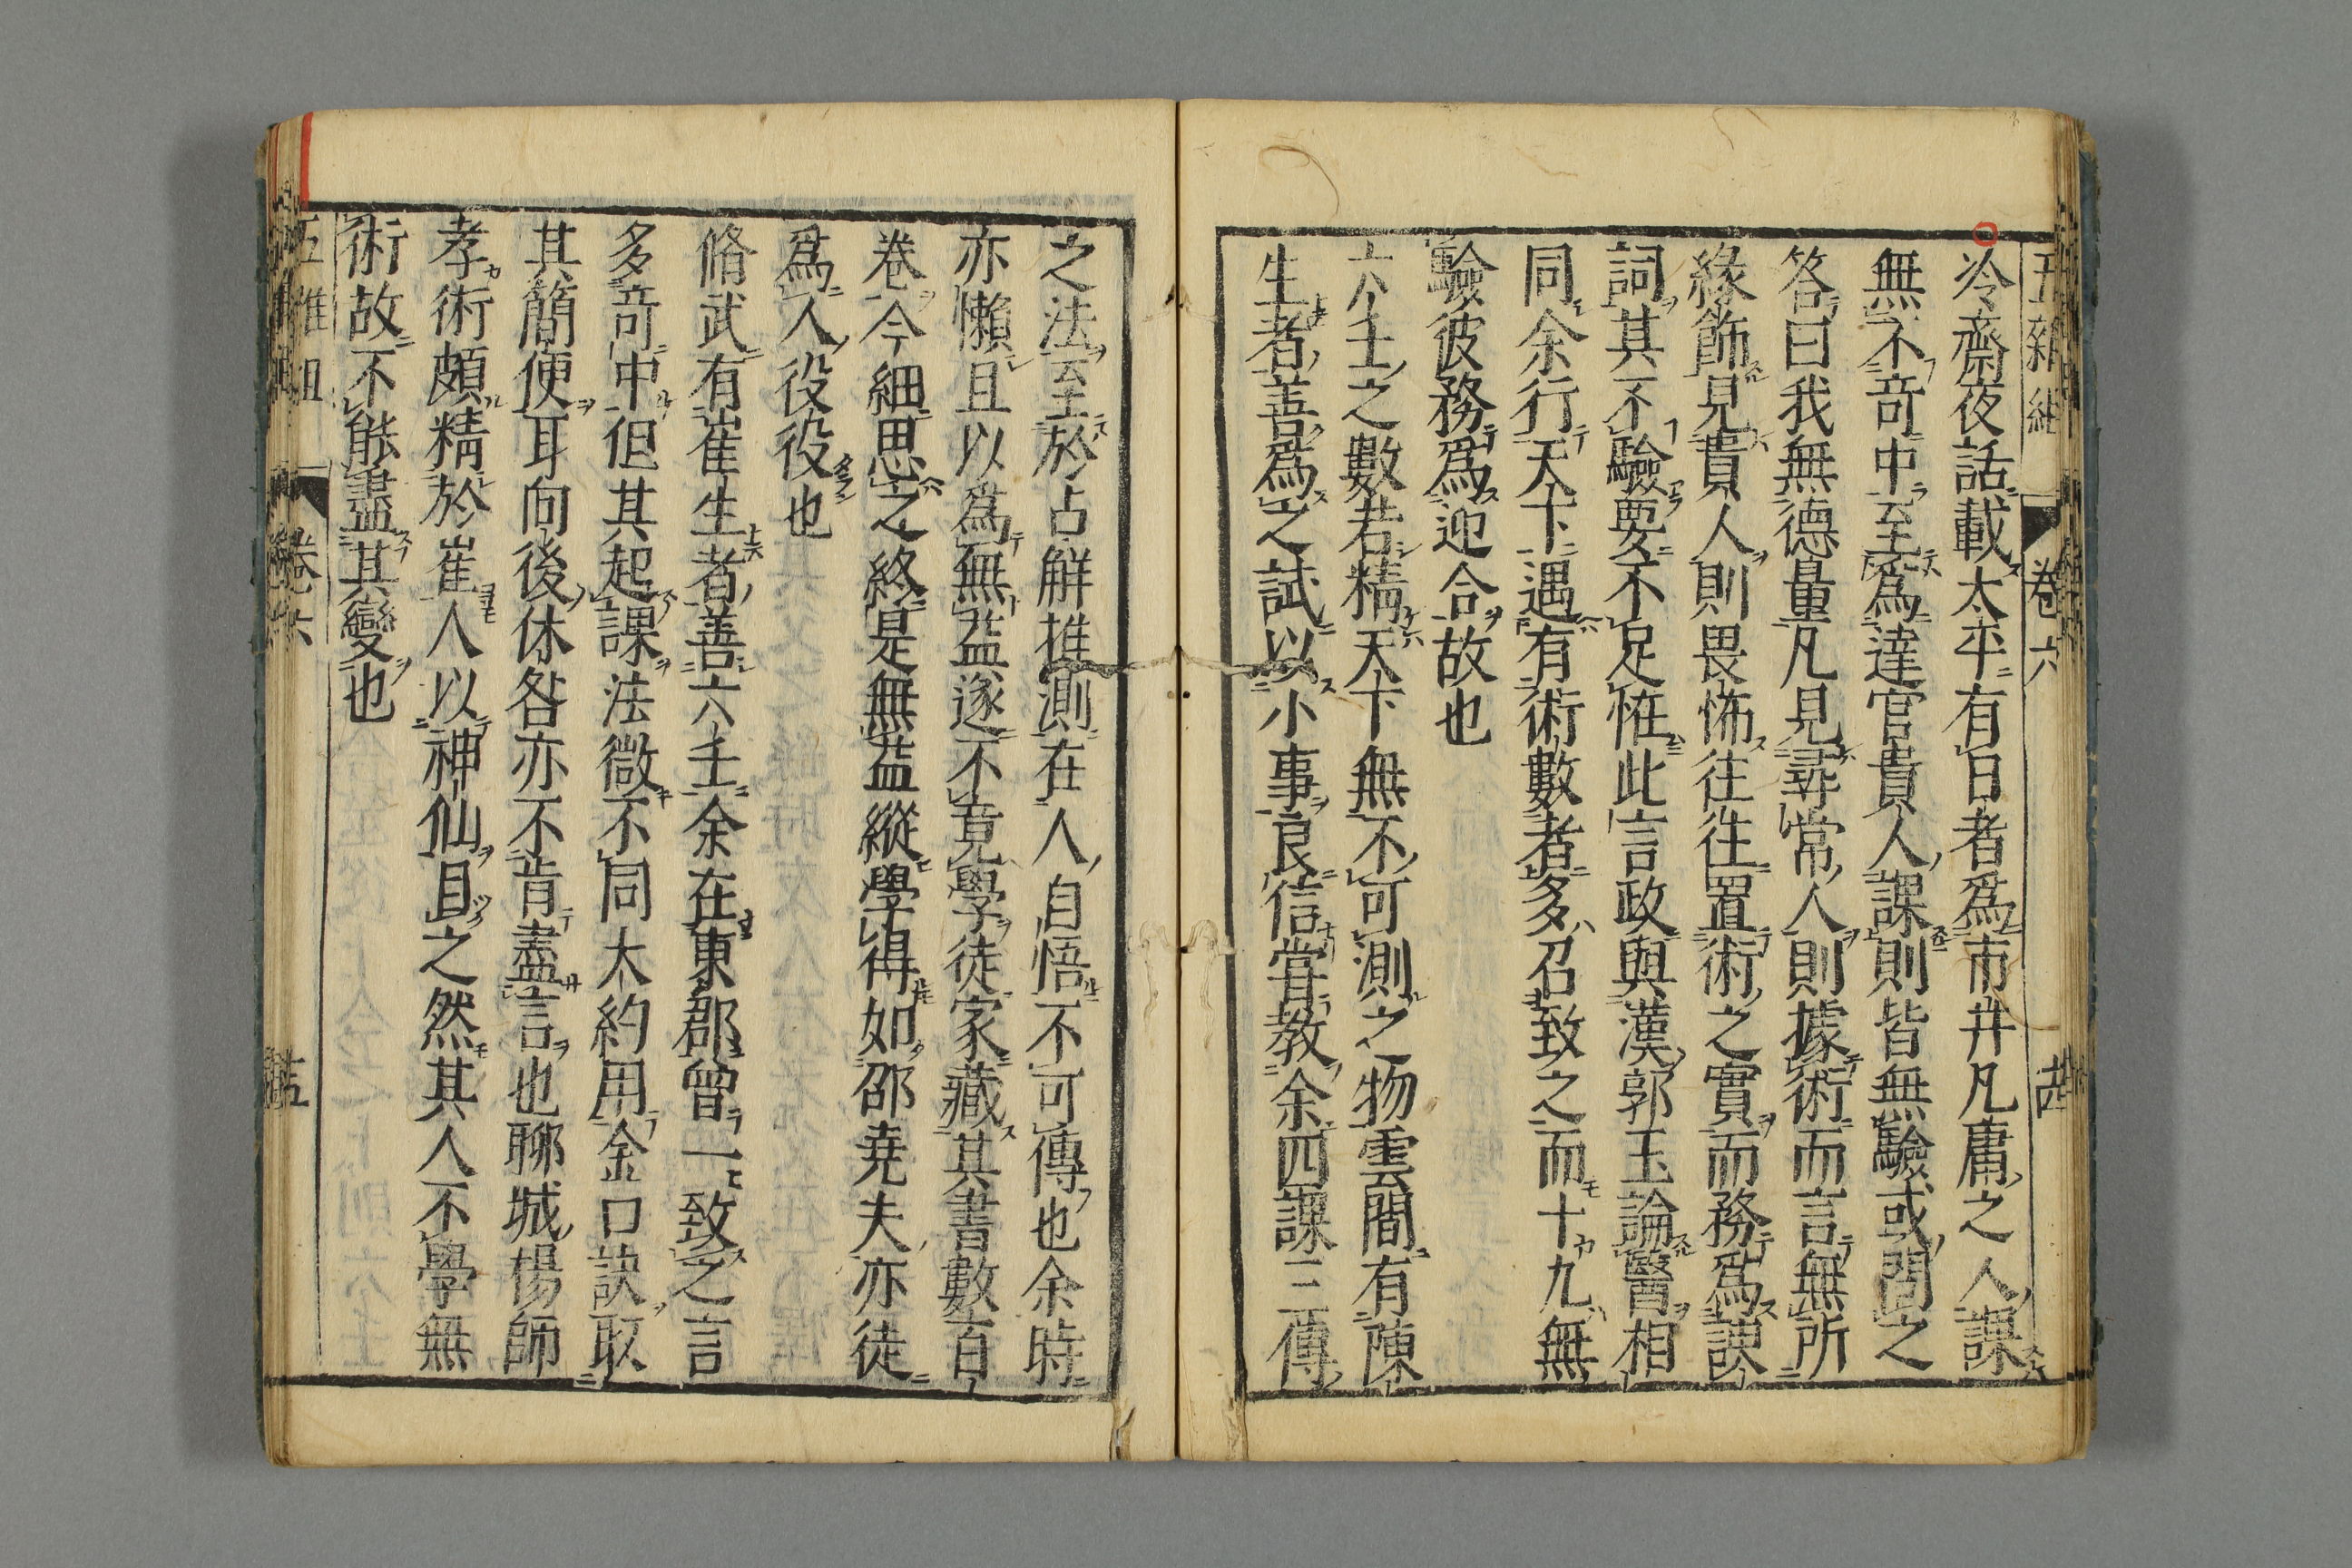 五雜組 卷六
冷齋夜話載太平有日者爲市井凡庸之人課
無不奇中至爲達官貴人課則皆無驗或問之
答曰我無德量凡見尋常人則據術而言無所
緣飾見貴人則畏怖往往置術之實而務爲諛
詞其不驗要不足恠此言政與漢郭玉論醫相
同余行天下遇有術數者多召致之而十九無
驗彼務爲迎合故也
六壬之數若精天下無不可測之物雲間有陳
生者善爲之試以小事良信嘗教余四課三傳
之法至於占觧推測在人自悟不可傳也余時
亦懶且以爲無益遂不竟學徒家藏其書數百
卷今細思之終是無益縱學得如邵堯夫亦徒
爲人役役也
脩武有崔生者善六壬余在東郡曾一致之言
多奇中但其起課法微不同大約用金口訣取
其簡便耳向後休咎亦不肯盡言也聊城楊師
孝術頗精於崔人以神仙目之然其人不學無
術故不能盡其變也
五雜組 卷六